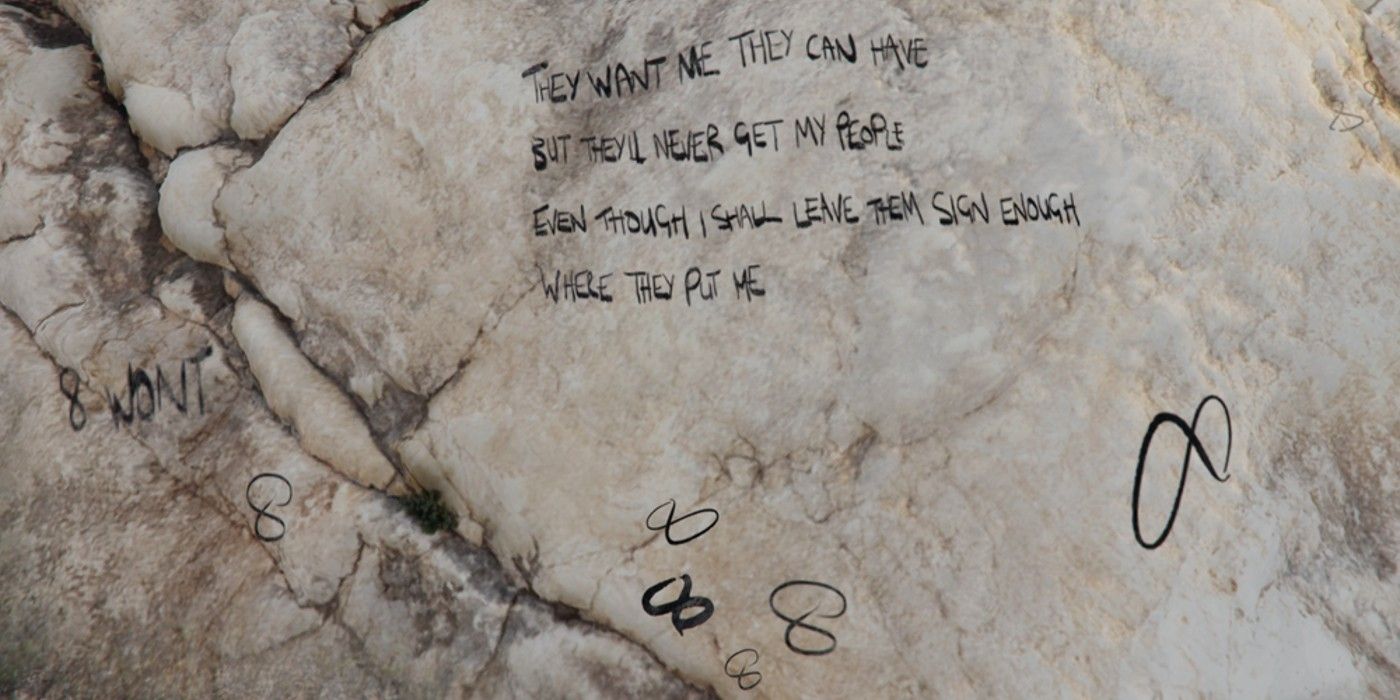 THEY WANT ME THEY CAN HAVE
BUT THEY'LL NEVER GET MY PEOPLE
EVEN THOUGH I SHALL LEAVE THEM SIGN ENOUGH
WHERE THEY PUT ME
8 WONT
8
8
8
8
8
8
8
8